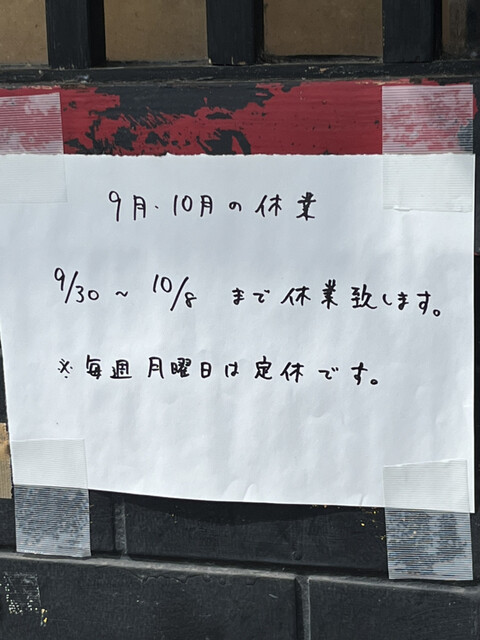 9月・10月の休業
9/30 ~ 10/8 まで休業致します。
※毎週月曜日は定休です。